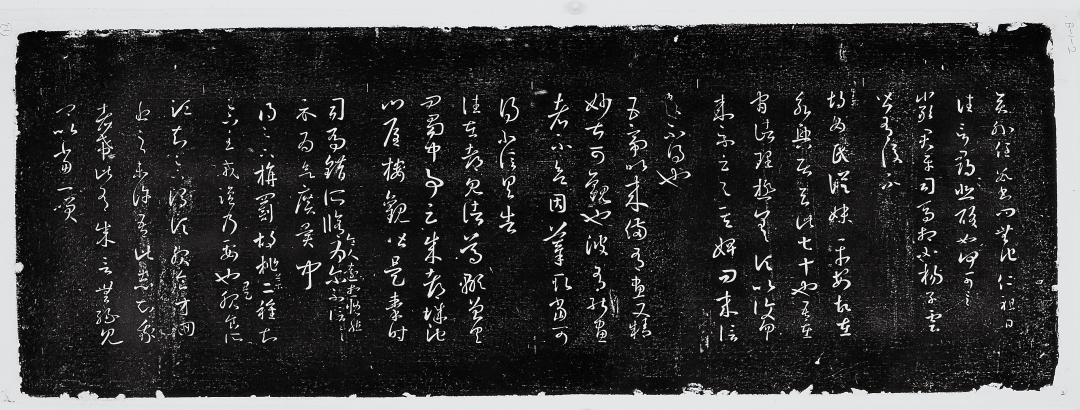 云外任數書問無他仁祖日
往言尋悲酸如何可言
嚴君平司馬相如揚子雲
皆有後不
胡母氏從妹平安故在
永興居去此七十也吾在
官諸理極差頃比復勿
勿來示云與其婢問來信
不得也
五帝以來備有畫又精
妙甚可觀也彼有能畫
者不欲因摹取當可
得不信具告
往在都見諸葛顯曾具
問蜀中事云成都城池
門屋樓觀皆是秦時
司馬錯所脩令人遠想慨然為爾不信具
示為欲廣異聞
得足下旃罽胡桃藥二種知
足下至戎鹽乃要也是服食所
須知足下謂須服食方回
近之未許吾此志知我
者希此有成言無緣見
卿以當一笑